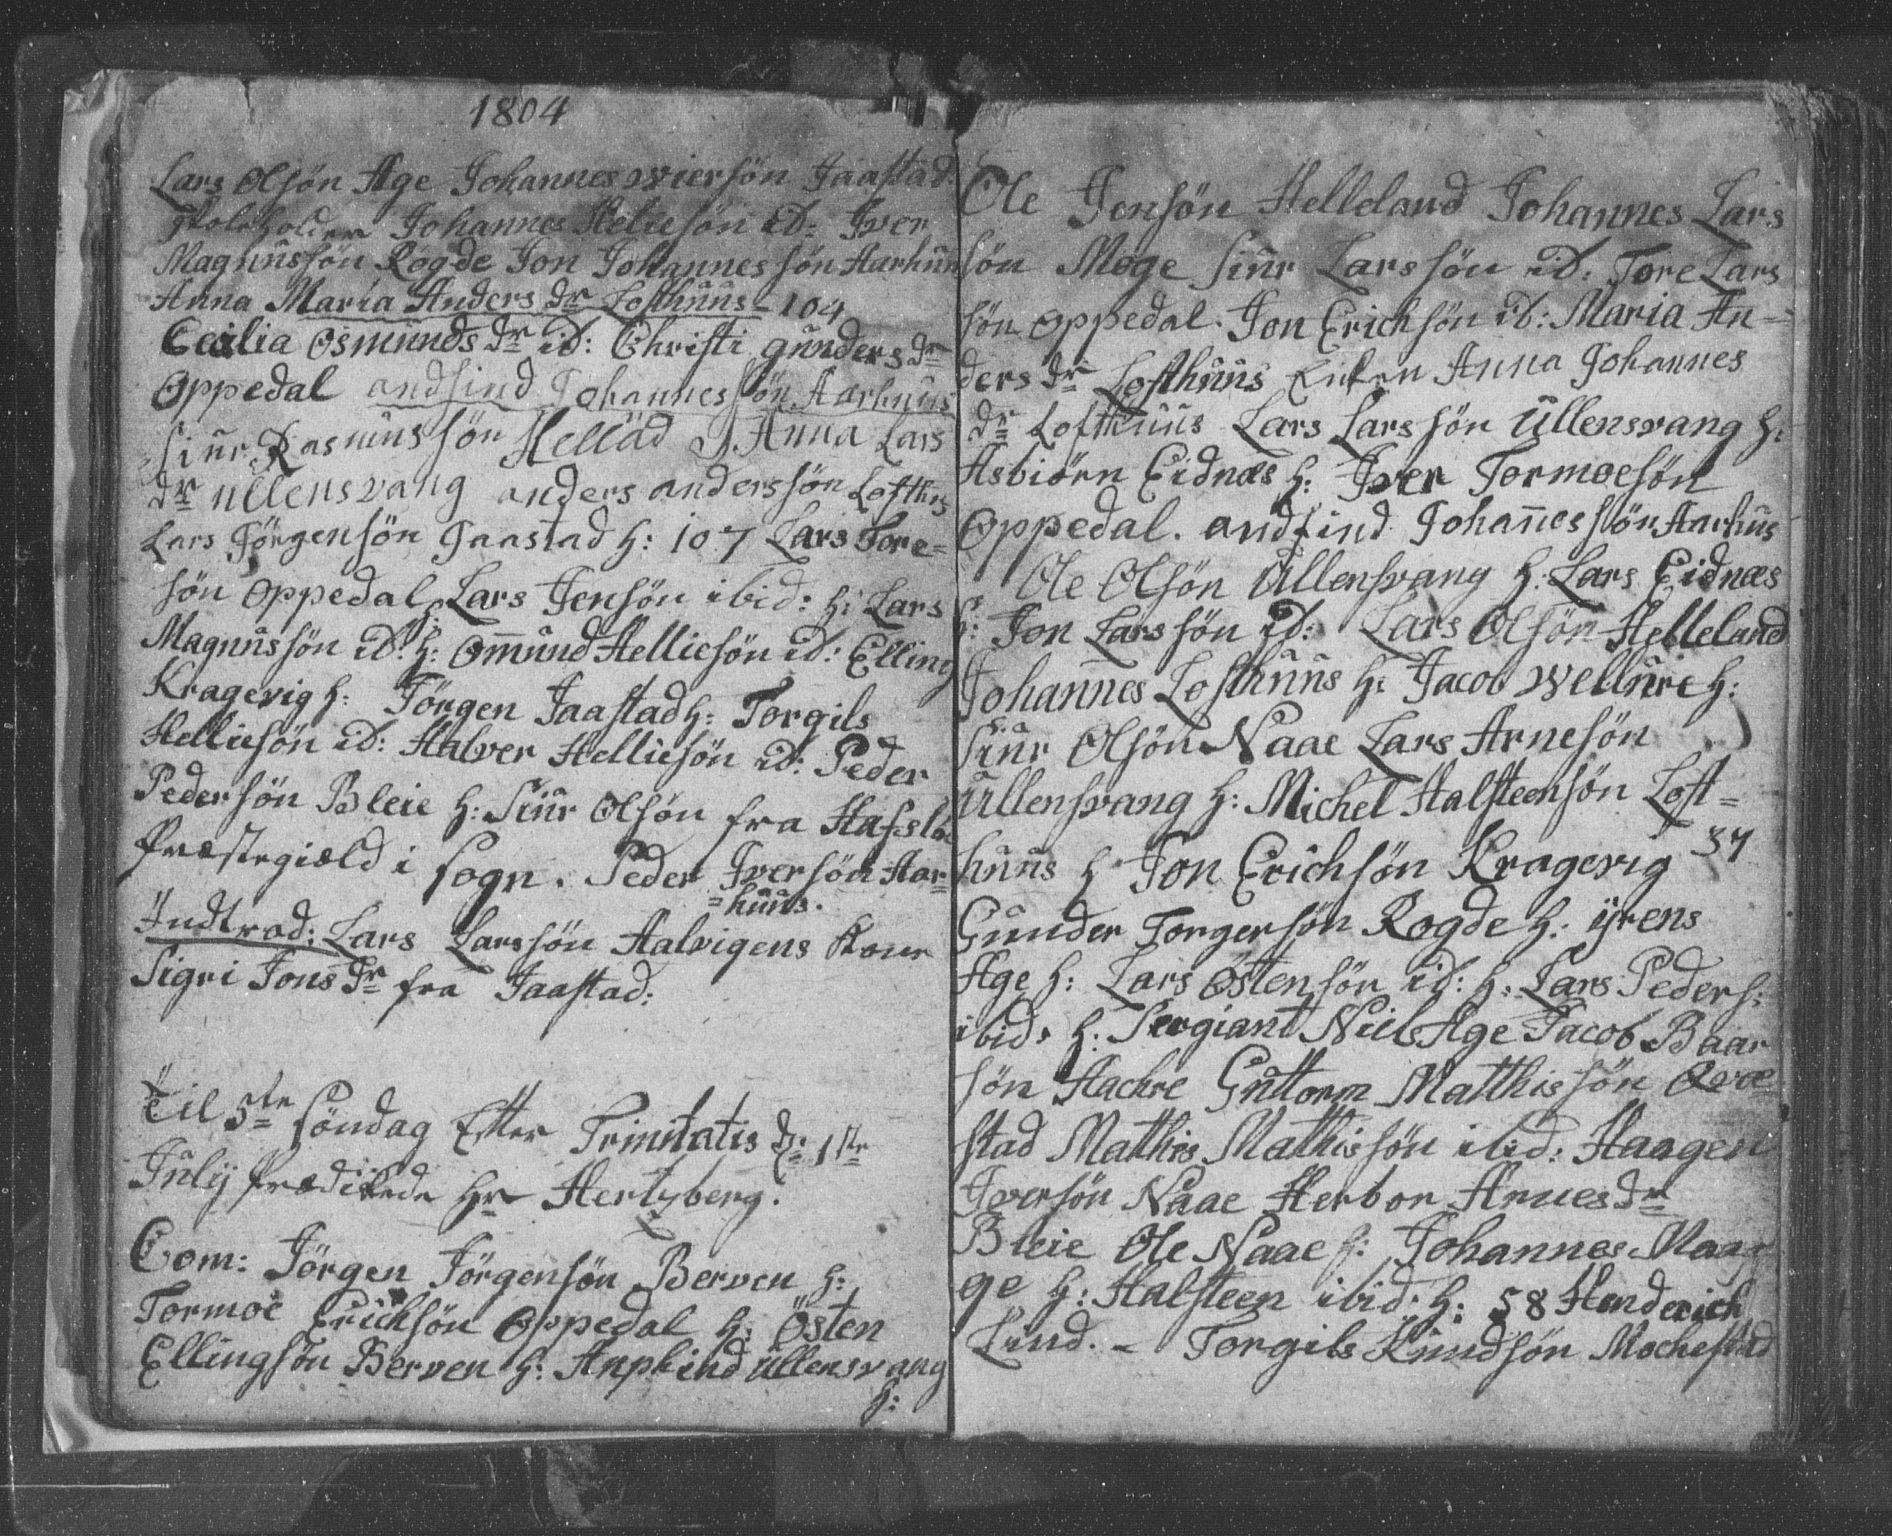 1804
Lars Olsön Age Johannes wiersön Jaastad.
skoleholder Johannes Heliesön id: Iver
Magnussön Rogde Jon Johannes sön Aarhuus
Anna Maria Anders dr Lofthuus - 104
Cecilia Osmunds dr id: Christi gunders dr
Oppedal andsind Johannes sön Aarhuus
Siur Rasmus sön Hellad Anna Lars
dr ullensvang anders anderssön Lofthus
Lars Jörgensön Jaastad h: 107 Lars Tore=
sön Oppedal h: Lars Jensön ibid: h: Lars
Magnussön id: h: Omund Helliesön id: Elling
Kragevig h: Jörgen Jaastad h: Torgils
Helliesön id: Halver Helliesön id: Peder
Pedersön Bleie h: Siur Olsön fra Hafslo
Præstegiæld i sogn. Peder Iversön Aar=
=huus.
Indtrad: Lars Larssön Aalvigens Kone
Sigri Jons dr fra Jaastad:
Til 5te Söndag Efter Trinitatis d: 1ste
July Prædikede Hr Hertzberg.
Com: Jörgen Jörgensön Berven h:
Tormoe Erichsön Oppedal h: Östen
Ellingsön Berven h: Anphind ullensvang
h:
Ole Jensön Helleland Johannes Lars
sön Moge Siur Larssön id: Tore Lars
sön Oppedal. Jon Erichsön id: Maria An-
ders dr Lofthuus Enken Anna Johannes
dr Lofthuus Lars Larssön Ullensvang h:
Asbiörn Eidnæs h: Iver Tormoesön
Oppedal. andsind Johannes sön Aarhus
Ole Olsön Ullensvang h: Lars Eidnæs
h: Jon Larssön id: Lars Olsön Helleland
Johannes Lofthuus h: Jacob wellure h:
Siur Olsön Naae Lars Arnesön
Ullensvang h: Michel Halsteensön Loft=
huus h Jon Erichsön Kragevig 37
Gunder Torgersön Rogde h: ijrens
Age h: Lars Östensön id: h: Lars Peders:
ibid. h: Sergiant Niels Age Jacob Baar
sön Hachre Guttorm Matthis sön Qvæ
stad Mathis Mathissön ibid: Haagen
Iversön Naae Herbor Arnes dr
Bleie Ole Naae h: Johannes Maa
ge h: Halsteen ibid: h: 58 Henderich
Lund. - Torgils Knudsön Mochestad